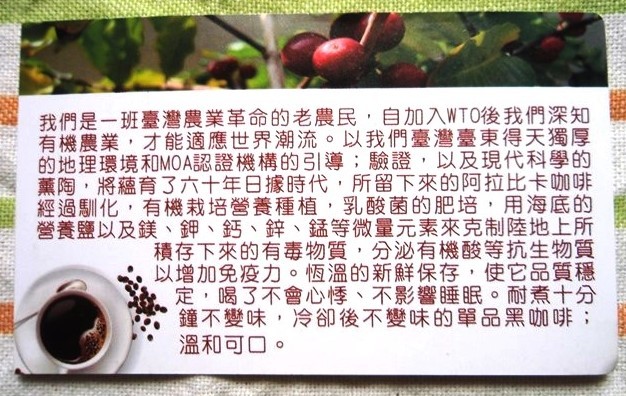 我們是一班臺灣農業革命的老農民，自加入WTO後我們深知
有機農業，才能適應世界潮流。以我們臺灣臺東得天獨厚
的地理環境和MOA認證機構的引導；驗證，以及現代科學的
薰陶，將蘊育了六十年日據時代，所留下來的阿拉比卡咖啡
經過馴化，有機栽培營養種植，乳酸菌的肥培，用海底的
營養鹽以及鎂、鉀、鈣、鋅、錳等微量元素來克制陸地上所
積存下來的有毒物質，分泌有機酸等抗生物質
以增加免疫力。恆溫的新鮮保存，使它品質穩
定，喝了不會心悸、不影響睡眠。耐煮十分
鐘不變味，冷卻後不變味的單品黑咖啡；
溫和可口。